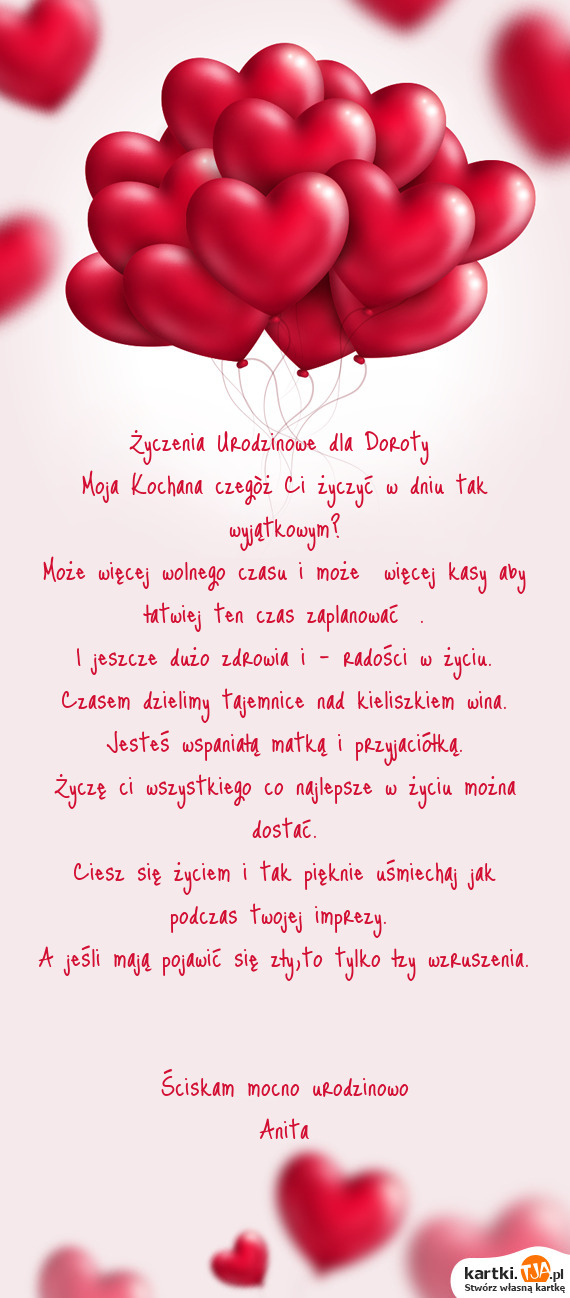 Życzenia Urodzinowe dla Doroty
Moja Kochana czegòż Ci życzyć w dniu tak
wyjątkowym?
Może więcej wolnego czasu i może więcej kasy aby
łatwiej ten czas zaplanować .
I jeszcze dużo zdrowia i - radości w życiu.
Czasem dzielimy tajemnice nad kieliszkiem wina.
Jesteś wspaniałą matką i przyjaciółką.
Życzę ci wszystkiego co najlepsze w życiu można
dostać.
Ciesz się życiem i tak pięknie uśmiechaj jak
podczas twojej imprezy.
A jeśli mają pojawić się zły,to tylko łzy wzruszenia.
Ściskam mocno urodzinowo
Anita
kartki.TJA.pl
Stwórz własną kartkę